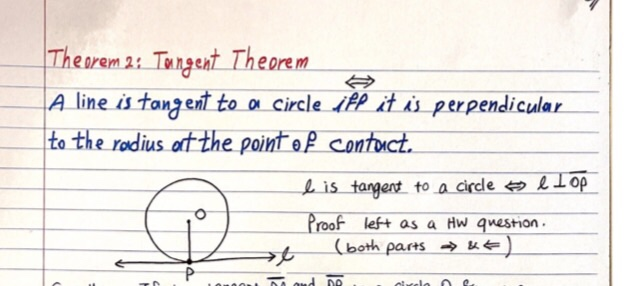 Theorem 2: Tangent Theorem
⇔
A line is tangent to a circle iff it is perpendicular
to the radius at the point of contact.
l is tangent to a circle ⇔ l ⊥ OP
O
Proof left as a HW question.
(both parts ⇒ & ⇐)
l
P
tangents and circle O